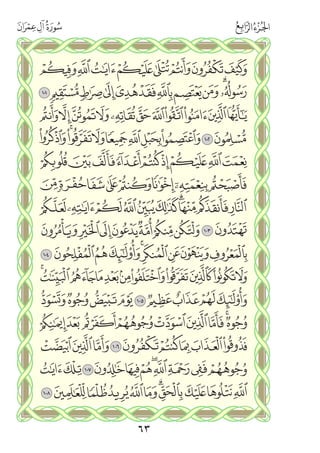 الجزء الرابع
سورة آل عمران
وَكَيْفَ تَكْفُرُونَ وَأَنتُمْ تُتْلَىٰ عَلَيْكُمْ ءَايَٰتُ ٱللَّهِ وَفِيكُمْ
رَسُولُهُۥ ۗ وَمَن يَعْتَصِم بِٱللَّهِ فَقَدْ هُدِىَ إِلَىٰ صِرَٰطٍ مُّسْتَقِيمٍ ١٠١
يَٰٓأَيُّهَا ٱلَّذِينَ ءَامَنُوا۟ ٱتَّقُوا۟ ٱللَّهَ حَقَّ تُقَاتِهِۦ وَلَا تَمُوتُنَّ إِلَّا وَأَنتُم
مُّسْلِمُونَ ١٠٢ وَٱعْتَصِمُوا۟ بِحَبْلِ ٱللَّهِ جَمِيعًا وَلَا تَفَرَّقُوا۟ ۚ وَٱذْكُرُوا۟
نِعْمَتَ ٱللَّهِ عَلَيْكُمْ إِذْ كُنتُمْ أَعْدَآءً فَأَلَّفَ بَيْنَ قُلُوبِكُمْ
فَأَصْبَحْتُم بِنِعْمَتِهِۦٓ إِخْوَٰنًا وَكُنتُمْ عَلَىٰ شَفَا حُفْرَةٍ مِّنَ
ٱلنَّارِ فَأَنقَذَكُم مِّنْهَا ۗ كَذَٰلِكَ يُبَيِّنُ ٱللَّهُ لَكُمْ ءَايَٰتِهِۦ لَعَلَّكُمْ
تَهْتَدُونَ ١٠٣ وَلْتَكُن مِّنكُمْ أُمَّةٌ يَدْعُونَ إِلَى ٱلْخَيْرِ وَيَأْمُرُونَ
بِٱلْمَعْرُوفِ وَيَنْهَوْنَ عَنِ ٱلْمُنكَرِ ۚ وَأُو۟لَٰٓئِكَ هُمُ ٱلْمُفْلِحُونَ ١٠٤
وَلَا تَكُونُوا۟ كَٱلَّذِينَ تَفَرَّقُوا۟ وَٱخْتَلَفُوا۟ مِنۢ بَعْدِ مَا جَآءَهُمُ ٱلْبَيِّنَٰتُ ۚ
وَأُو۟لَٰٓئِكَ لَهُمْ عَذَابٌ عَظِيمٌ ١٠٥ يَوْمَ تَبْيَضُّ وُجُوهٌ وَتَسْوَدُّ
وُجُوهٌ ۚ فَأَمَّا ٱلَّذِينَ ٱسْوَدَّتْ وُجُوهُهُمْ أَكَفَرْتُم بَعْدَ إِيمَٰنِكُمْ
فَذُوقُوا۟ ٱلْعَذَابَ بِمَا كُنتُمْ تَكْفُرُونَ ١٠٦ وَأَمَّا ٱلَّذِينَ ٱبْيَضَّتْ
وُجُوهُهُمْ فَفِى رَحْمَةِ ٱللَّهِ هُمْ فِيهَا خَٰلِدُونَ ١٠٧ تِلْكَ ءَايَٰتُ
ٱللَّهِ نَتْلُوهَا عَلَيْكَ بِٱلْحَقِّ ۗ وَمَا ٱللَّهُ يُرِيدُ ظُلْمًا لِّلْعَٰلَمِينَ ١٠٨
٦٣